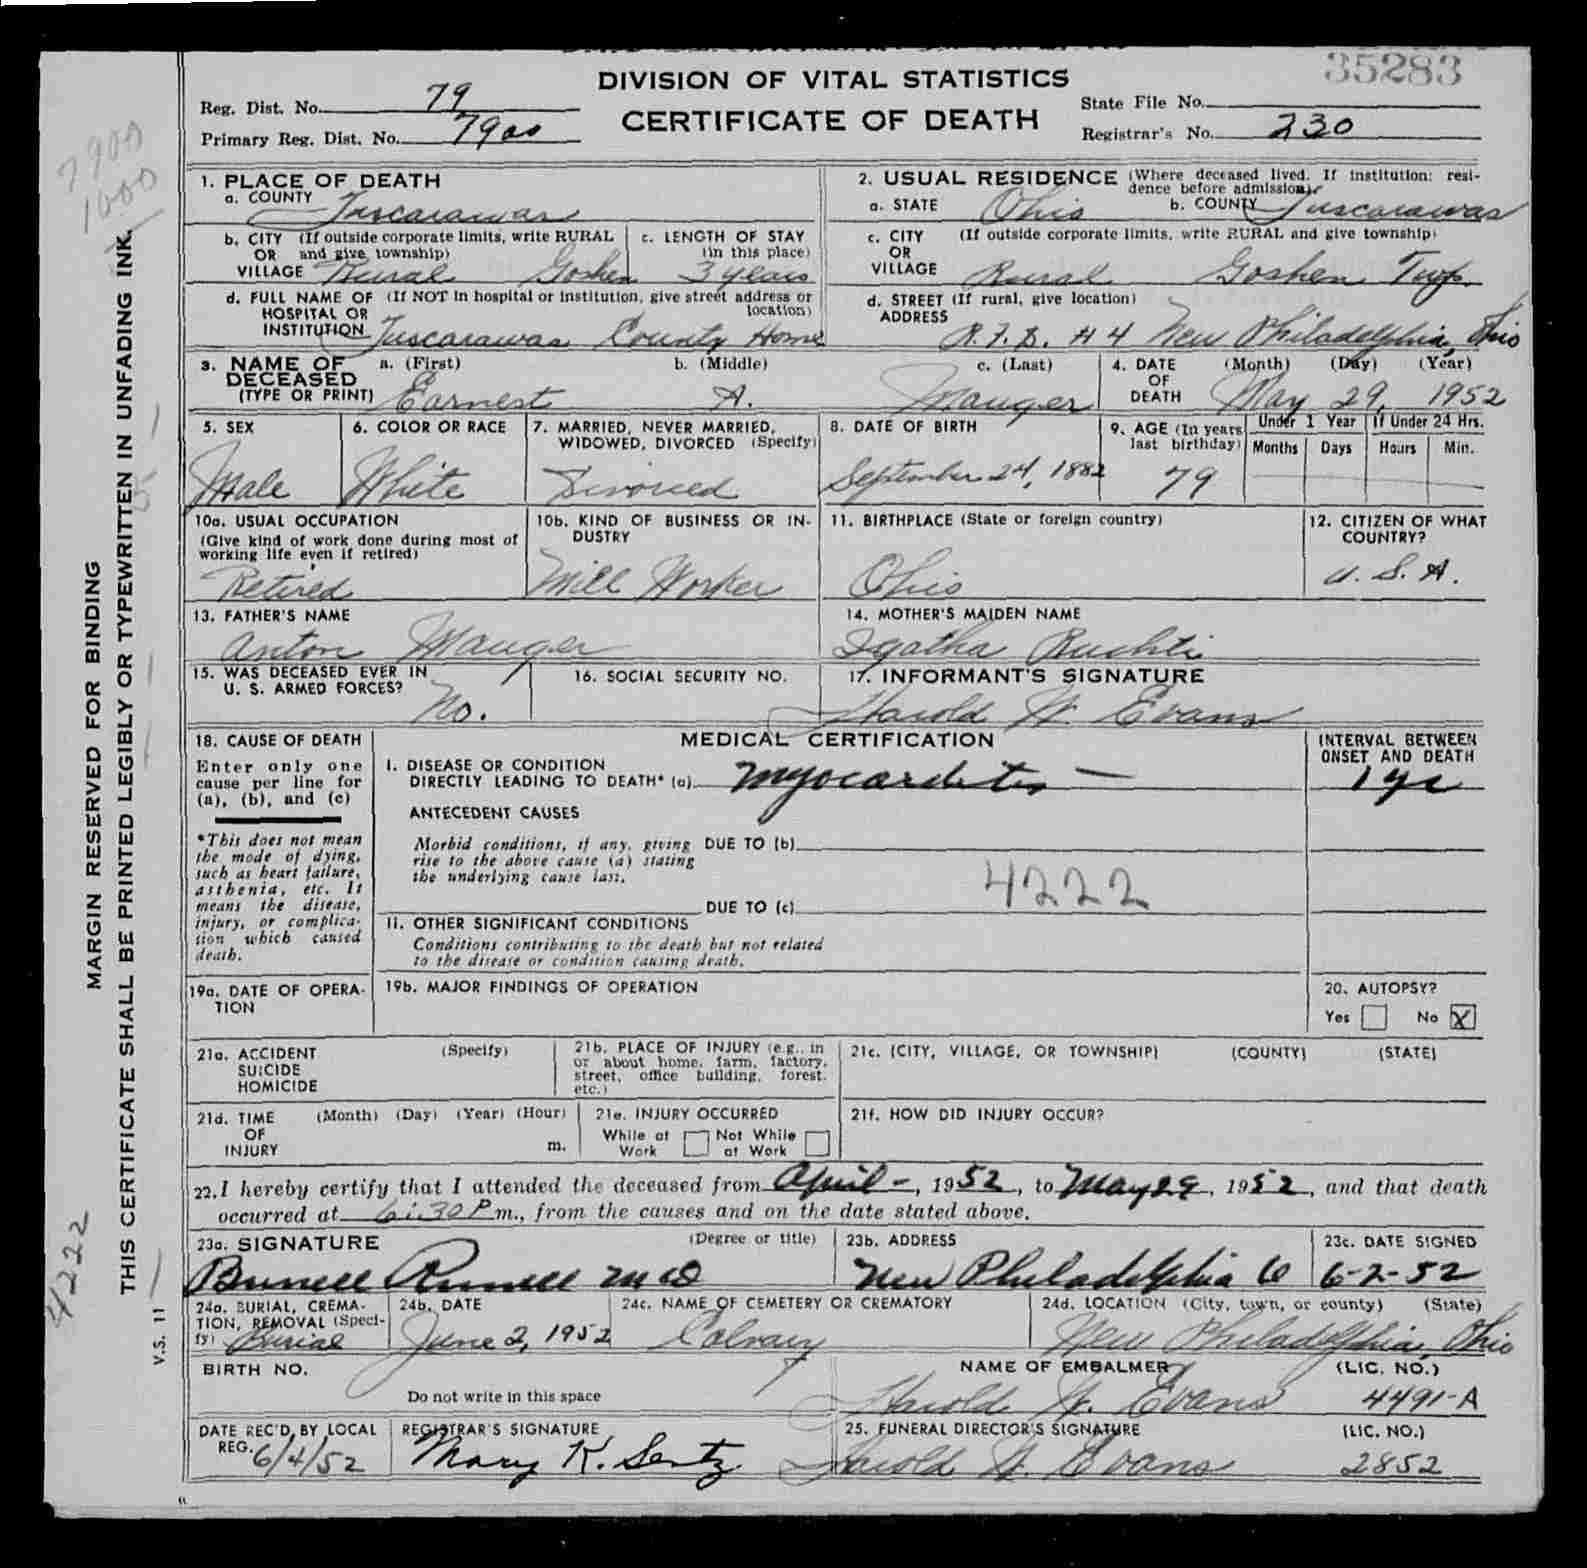 35283
DIVISION OF VITAL STATISTICS
CERTIFICATE OF DEATH
Reg. Dist. No. 79
Primary Reg. Dist. No. 7900
State File No.
Registrar's No. 230
7900
1000
MARGIN RESERVED FOR BINDING
THIS CERTIFICATE SHALL BE PRINTED LEGIBLY OR TYPEWRITTEN IN UNFADING INK.
4222
V.S. 11
1. PLACE OF DEATH
a. COUNTY Tuscarawas
b. CITY (If outside corporate limits, write RURAL
OR and give township)
VILLAGE Rural Goshen
c. LENGTH OF STAY
(in this place)
3 years
d. FULL NAME OF (If NOT in hospital or institution, give street address or
HOSPITAL OR location)
INSTITUTION Tuscarawas County Home
2. USUAL RESIDENCE (Where deceased lived. If institution: resi-
dence before admission)
a. STATE Ohio b. COUNTY Tuscarawas
c. CITY (If outside corporate limits, write RURAL and give township)
OR
VILLAGE Rural Goshen Twp.
d. STREET (If rural, give location)
ADDRESS
R.F.D. #4 New Philadelphia, Ohio
3. NAME OF DECEASED
(TYPE OR PRINT)
a. (First) b. (Middle) c. (Last)
Earnest A. Mauger
4. DATE OF DEATH
(Month) (Day) (Year)
May 29, 1952
5. SEX
Male
6. COLOR OR RACE
White
7. MARRIED, NEVER MARRIED,
WIDOWED, DIVORCED (Specify)
Divorced
8. DATE OF BIRTH
September 24, 1882
9. AGE (In years
last birthday)
79
Under 1 Year If Under 24 Hrs.
Months Days Hours Min.
10a. USUAL OCCUPATION
(Give kind of work done during most of
working life even if retired)
Retired
10b. KIND OF BUSINESS OR IN-
DUSTRY
Mill Worker
11. BIRTHPLACE (State or foreign country)
Ohio
12. CITIZEN OF WHAT
COUNTRY?
U. S. A.
13. FATHER'S NAME
Anton Mauger
14. MOTHER'S MAIDEN NAME
Igatha Ruchti
15. WAS DECEASED EVER IN
U. S. ARMED FORCES?
No.
16. SOCIAL SECURITY NO.
17. INFORMANT'S SIGNATURE
Harold W. Evans
18. CAUSE OF DEATH
Enter only one
cause per line for
(a), (b), and (c)
*This does not mean
the mode of dying,
such as heart failure,
asthenia, etc. It
means the disease,
injury, or complica-
tion which caused
death.
MEDICAL CERTIFICATION
INTERVAL BETWEEN
ONSET AND DEATH
I. DISEASE OR CONDITION
DIRECTLY LEADING TO DEATH* (a) Myocarditis — 1 yr
ANTECEDENT CAUSES
Morbid conditions, if any, giving
rise to the above cause (a) stating
the underlying cause last.
DUE TO (b)
4222
DUE TO (c)
II. OTHER SIGNIFICANT CONDITIONS
Conditions contributing to the death but not related
to the disease or condition causing death.
19a. DATE OF OPERA-
TION
19b. MAJOR FINDINGS OF OPERATION
20. AUTOPSY?
Yes No X
21a. ACCIDENT (Specify)
SUICIDE
HOMICIDE
21b. PLACE OF INJURY (e.g., in
or about home, farm, factory,
street, office building, forest,
etc.)
21c. (CITY, VILLAGE, OR TOWNSHIP) (COUNTY) (STATE)
21d. TIME (Month) (Day) (Year) (Hour)
OF
INJURY m.
21e. INJURY OCCURRED
While at Work Not While at Work
21f. HOW DID INJURY OCCUR?
22. I hereby certify that I attended the deceased from April –, 1952, to May 29, 1952, and that death
occurred at 6:30 P m., from the causes and on the date stated above.
23a. SIGNATURE (Degree or title)
Russell MD
23b. ADDRESS
New Philadelphia O
23c. DATE SIGNED
6-2-52
24a. BURIAL, CREMA-
TION, REMOVAL (Speci-
fy) Burial
24b. DATE
June 2, 1952
24c. NAME OF CEMETERY OR CREMATORY
Calvary
24d. LOCATION (City, town, or county) (State)
New Philadelphia, Ohio
BIRTH NO.
Do not write in this space
NAME OF EMBALMER (LIC. NO.)
Harold W. Evans 4491-A
DATE REC'D BY LOCAL
REG. 6/4/52
REGISTRAR'S SIGNATURE
Mary K. Sentz
25. FUNERAL DIRECTOR'S SIGNATURE (LIC. NO.)
Harold W. Evans 2852